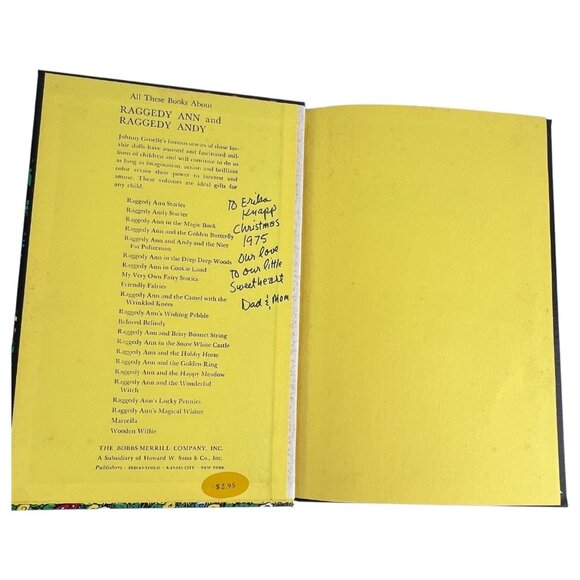 All These Books About
RAGGEDY ANN and
RAGGEDY ANDY
Johnny Gruelle's famous stories of these lov-
able dolls have amused and fascinated mil-
lions of children and will continue to do so
as long as imagination, action and brilliant
color retain their power to interest and
amuse. These volumes are ideal gifts for
any child.
Raggedy Ann Stories
Raggedy Andy Stories
Raggedy Ann in the Magic Book
Raggedy Ann and the Golden Butterfly
Raggedy Ann and Andy and the Nice
Fat Policeman
Raggedy Ann in the Deep Deep Woods
Raggedy Ann in Cookie Land
My Very Own Fairy Stories
Friendly Fairies
Raggedy Ann and the Camel with the
Wrinkled Knees
Raggedy Ann's Wishing Pebble
Beloved Belindy
Raggedy Ann and Betsy Bonnet String
Raggedy Ann in the Snow White Castle
Raggedy Ann and the Hobby Horse
Raggedy Ann and the Golden Ring
Raggedy Ann and the Happy Meadow
Raggedy Ann and the Wonderful
Witch
Raggedy Ann's Lucky Pennies
Raggedy Ann's Magical Wishes
Marcella
Wooden Willie
THE BOBBS-MERRILL COMPANY, INC.
A Subsidiary of Howard W. Sams & Co., Inc.
Publishers · INDIANAPOLIS · KANSAS CITY · NEW YORK
$2.95
To Erika
Knapp
Christmas
1975
Our love
to our little
Sweetheart
Dad & Mom